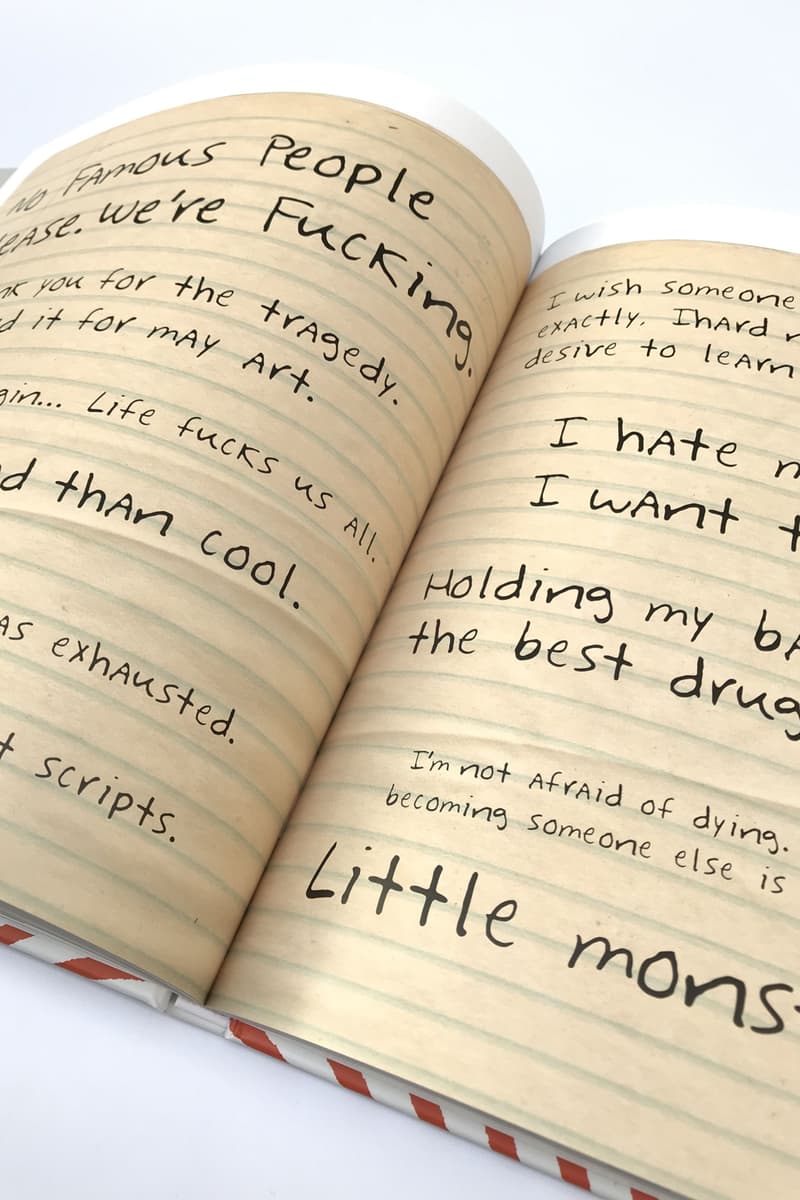 No FAmous People
eASe. we're FucKing.
nk you for the trAgedy.
d it for mAy Art.
gin... Life fucks us All.
d thAn cool.
AS exhAusted.
t scripts.
I wish someone
exActly. IhArd
desive to leArn
I hAte
I wAnt
Holding my
the best drug
I'm not AfrAid of dying.
becoming someone else is
Little mons